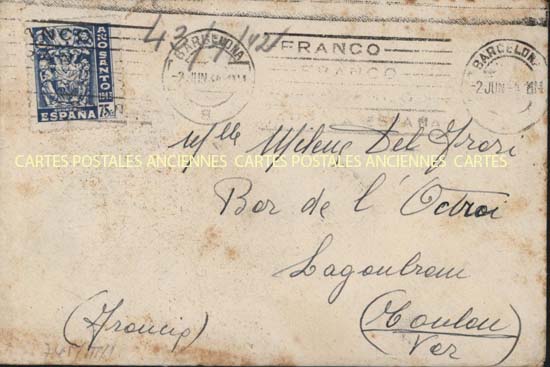 43/1/421
BARCELONA
2 JUN
8
FRANCO
FRANCO
ESPAÑA
BARCELONA
2 JUN
AÑO SANTO
ESPAÑA
Mlle Milene Del Frari
CARTES POSTALES ANCIENNES CARTES POSTALES ANCIENNES CARTES
Bar de l'Octroi
Lagoubran
(Toulon)
Var
(Francia)